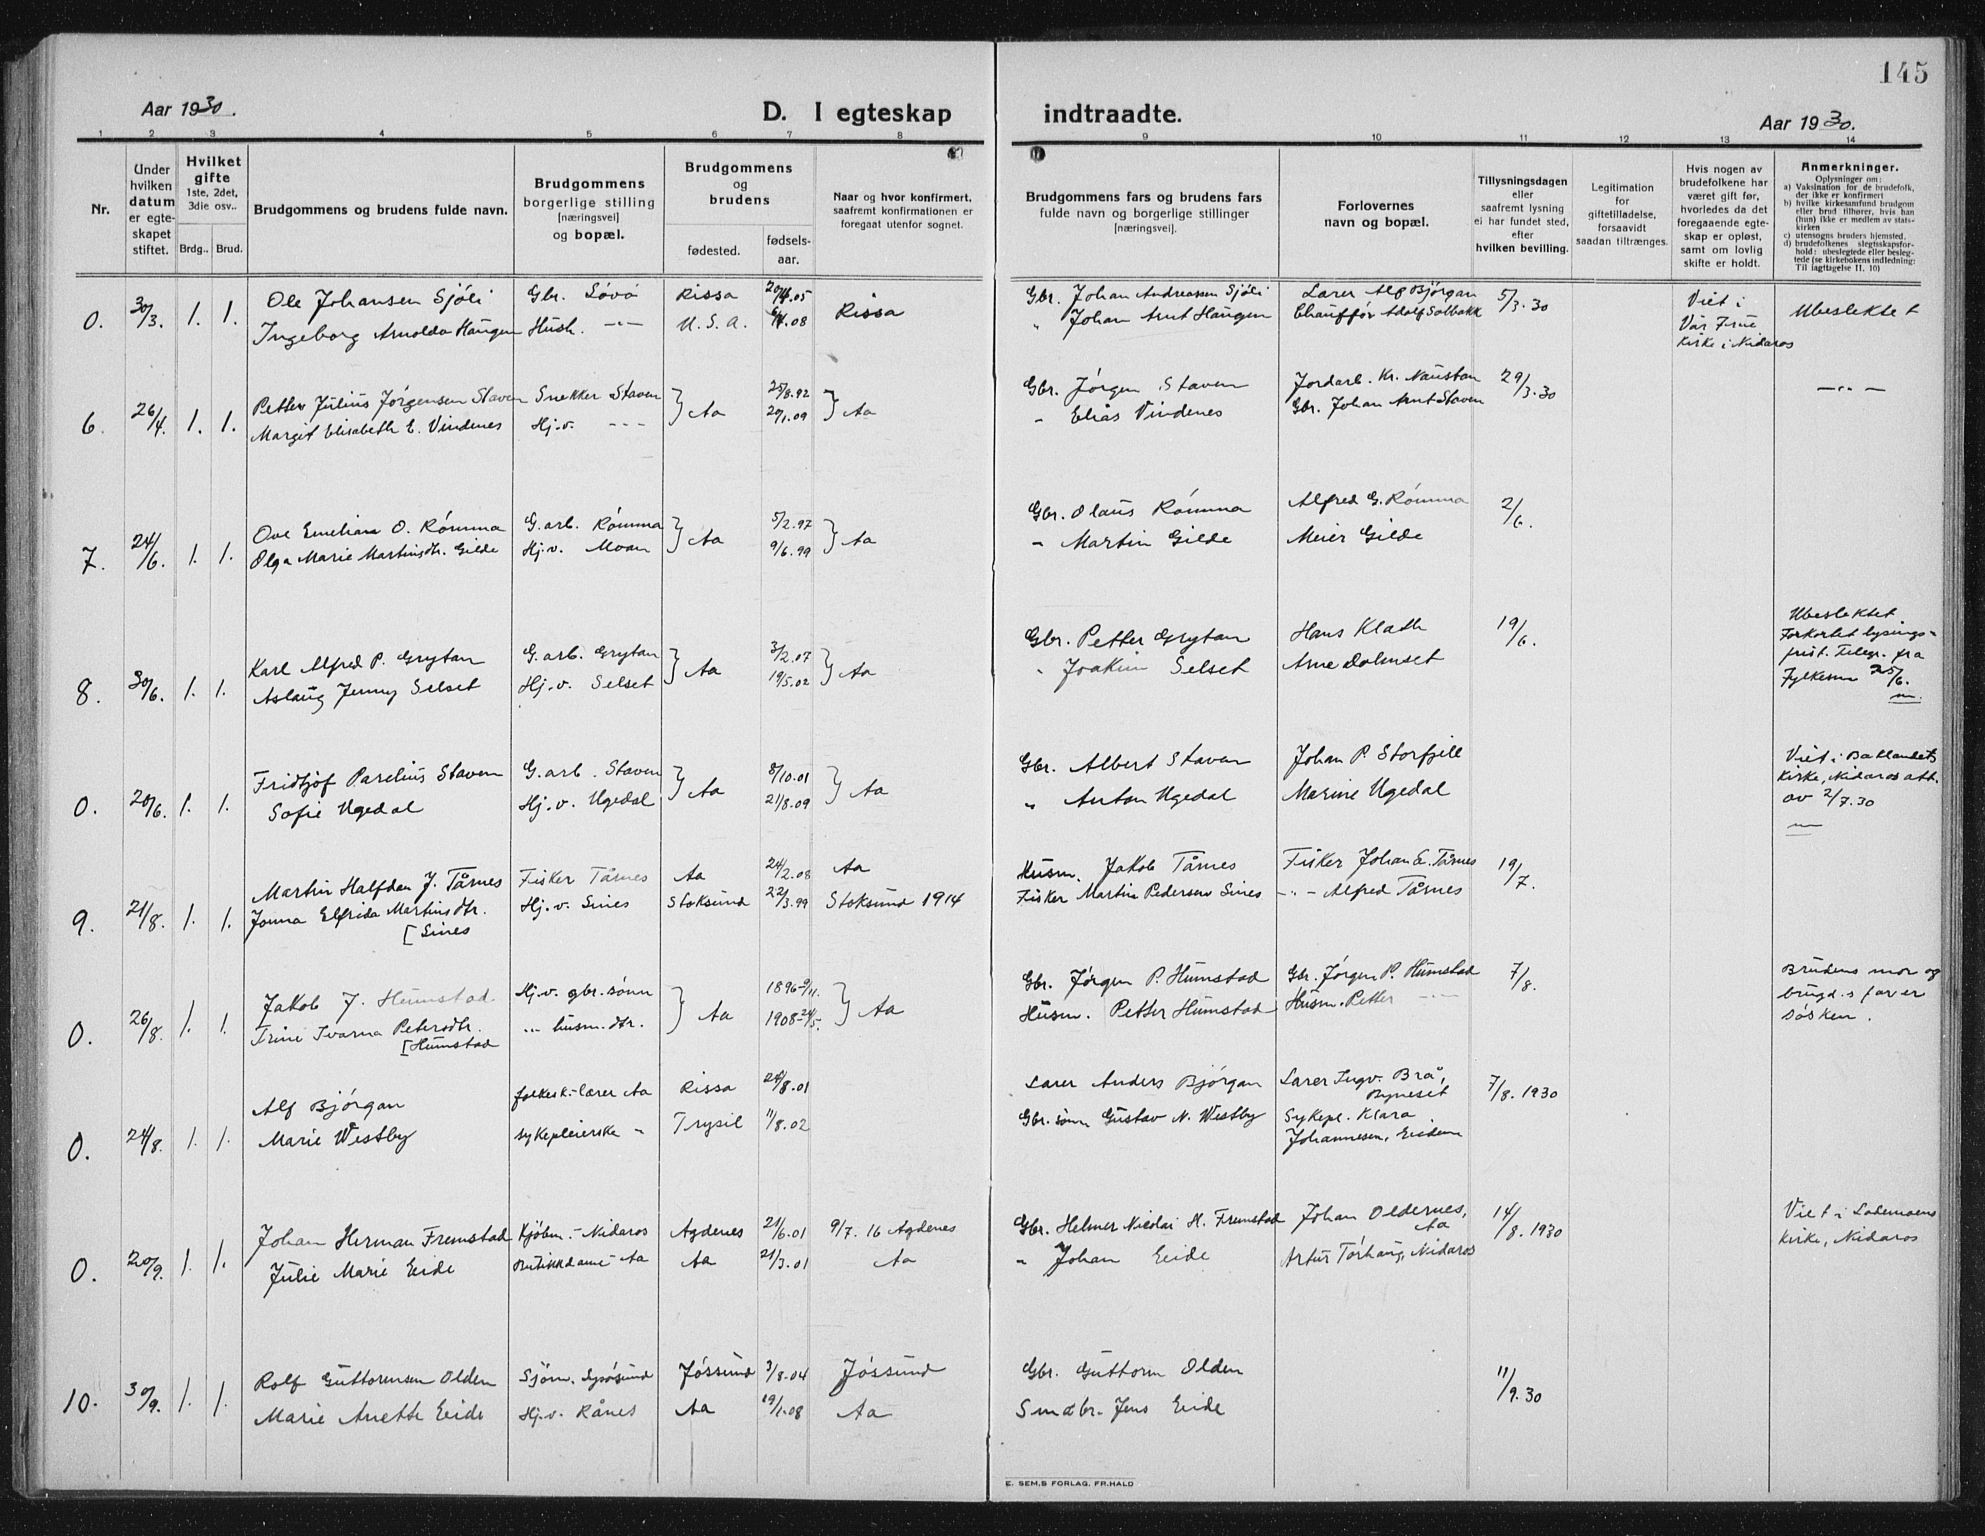 145
Aar 1930.
D. I egteskap indtraadte.
Aar 1930.
1 2 3 4 5 6 7 8 9 10 11 12 13 14
Nr.
Under hvilken datum er egte-skapet stiftet.
Hvilket gifte 1ste, 2det, 3die osv..
Brdg.. Brud.
Brudgommens og brudens fulde navn.
Brudgommens borgerlige stilling [næringsvei] og bopæl.
Brudgommens og brudens
fødested.
fødsels-aar.
Naar og hvor konfirmert, saafremt konfirmationen er foregaat utenfor sognet.
Brudgommens fars og brudens fars fulde navn og borgerlige stillinger [næringsvei].
Forlovernes navn og bopæl.
Tillysningsdagen eller saafremt lysning ei har fundet sted, efter hvilken bevilling.
Legitimation for giftetilladelse, forsaavidt saadan tiltrænges.
Hvis nogen av brudefolkene har været gift før, hvorledes da det foregaaende egte-skap er opløst, samt om lovlig skifte er holdt.
Anmerkninger.
Oplysninger om:
a) Vaksination for de brudefolk, der ikke er konfirmert
b) hvilke kirkesamfund brudgom eller brud tilhører, hvis han (hun) ikke er medlem av stats-kirken
c) utensogns bruders hjemsted,
d) brudefolkenes slegtsskapsfor-hold: ubeslegtede eller besleg-tede (se kirkebokens indledning: Til iagttagelse II. 10)
0. 30/3. 1. 1. Ole Johansen Sjøli Gbr. Søvò Rissa 20/4.05 Rissa Gbr. Johan Andreassen Sjøli Lærer Alf Bjørgan 5/3.30 Viet i Vår Frue kirke i Nidaros Ubeslektet
Ingeborg Arnolda Haugen Hush. -"- U.S.A. 6/4.08 " Johan Arnt Haugen Chauffør Adolf Solbakk
6. 26/4. 1. 1. Petter Julius Jørgensen Staven Snekker Staven } Aa 25/8.92 } Aa Gbr. Jørgen Staven Jordarb. Kr. Naustan 29/3.30 -"-
Margit Elisabeth E. Vindenes Hj.v. --- 20/1.09 - Elias Vindenes Gbr. Johan Arnt Staven
7. 24/6. 1. 1. Ove Emelian O. Römma G.arb. Römma } Aa 5/2.97 } Aa Gbr. Olaus Römma Alfred G. Römma 2/6.
Olga Marie Martinsdtr. Gilde Hj.v. Moan 9/6.99 - Martin Gilde Meier Gilde
8. 30/6. 1. 1. Karl Alfred P. Grytan G.arb. Grytan } Aa 3/2.07 } Aa Gbr. Petter Grytan Hans Klakk 19/6. Ubeslektet. Forkortet lysings-frist. Telegr. fra Fylkesm 25/6.
Aslaug Jenny Selset Hj.v. Selset 19/5.02 " Joakim Selset Arne Dolmset
0. 20/6. 1. 1. Fridtjof Parelius Staven G.arb. Staven } Aa 8/10.01 } Aa Gbr. Albert Staven Johan P. Storfjell Viet i Baklandets kirke, Nidaros att. av 2/7.30
Sofie Ugedal Hj.v. Ugedal 21/8.09 " Anton Ugedal Marine Ugedal
9. 21/8. 1. 1. Martin Halfdan J. Tårnes Fisker Tårnes Aa 24/2.08 Aa Husm. Jakob Tårnes Fisker Johan E. Tårnes 19/7.
Jonna Elfrida Martinsdtr. [Sines Hj.v. Sines Stoksund 22/3.99 Stoksund 1914 Fisker Martin Pedersen Sines -"- Alfred Tårnes
0. 26/8. 1. 1. Jakob J. Humstad Hj.v. gbr.sønn } Aa 1896-9/11. } Aa Gbr. Jørgen P. Humstad Gbr. Jørgen P. Humstad 7/8. Brudens mor og brudg.s far er søsken.
Trine Ivarna Petersdtr. [Humstad -"- husm.dtr. 1908-24/5. Husm. Petter Humstad Husm. Petter ---
0. 24/8. 1. 1. Alf Bjørgan folkesk.-lærer Aa Rissa 24/8.01 Lærer Anders Bjørgan Lærer Ingv. Brå, Byneset 7/8.1930
Marie Westby sykepleierske - Trysil 11/8.02 Gbr.sønn Gustav N. Westby Sykepl. Klara Johannesen,
0. 20/9. 1. 1. Johan Herman Fremstad Kjøbm.-Nidaros Agdenes 21/6.01 9/7.16 Agdenes Gbr. Helmer Nicolai H. Fremstad Johan Oldernes, Aa 14/8.1930 Viet i Lademoens kirke, Nidaros
Julie Marie Eide Butikkdame-Aa Aa 21/3.01 Aa - Johan Eide Artur Tørhaug, Nidaros
10. 30/9. 1. 1. Rolf Guttormsen Olden Sjøm. Jøssund 3/8.04 Jøssund Gbr. Guttorm Olden 11/9.30
Marie Anette Eide Hj.v. Rånes Aa 19/1.08 Aa Småbr. Jens Eide
E. SEM.S FORLAG, FR.HALD